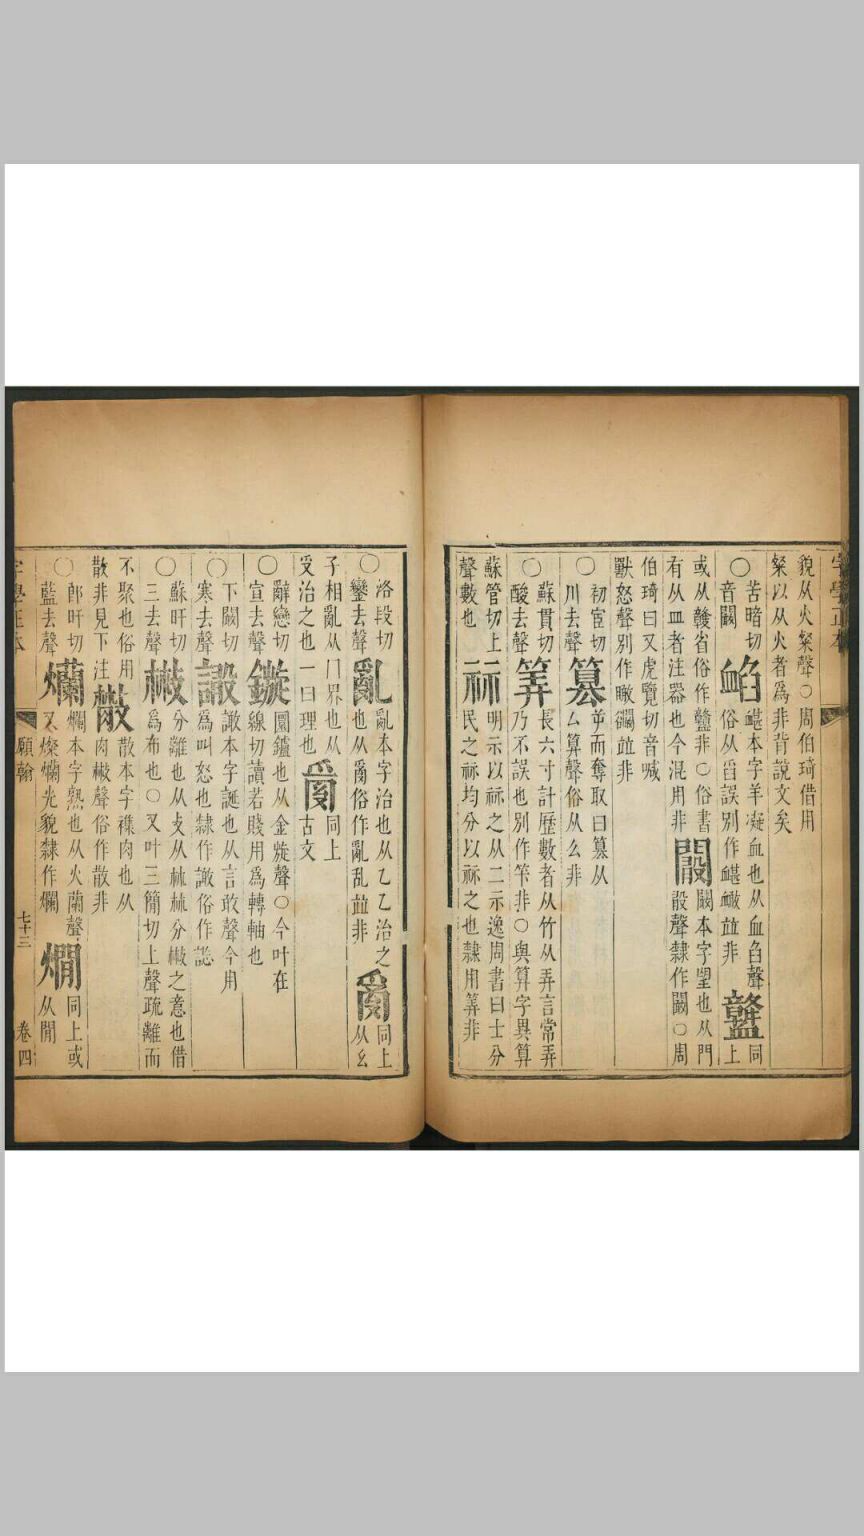 字學正本
貌从火粲聲○周伯琦借用
粲以从火者爲非背說文矣
○苦暗切
音闞
䘓
𥁃本字羊凝血也从血臽聲
俗从舀誤別作𥁃衉竝非
同上
或从贛省俗作𧗎非○俗書
有从皿者注器也今混用非
闞本字望也从門
㪋聲隸作闞○周
伯琦曰又虎覽切音喊
獸怒聲別作瞰㘚竝非
○初宦切
川去聲
篡
屰而奪取曰篡从
厶算聲俗从么非
○蘇貫切
酸去聲
筭
長六寸計歷數者从竹从弄言常弄
乃不誤也別作筞非○與算字異算
蘇管切上
聲數也
祘
明示以祘之从二示逸周書曰士分
民之祘均分以祘之也隸用筭非
○洛段切
鑾去聲
亂
亂本字治也从乙乙治之
也从𤔔俗作亂乱竝非
𤔔
同上
从幺
子相亂从冂界也从
受治之也一曰理也
同上
古文
○辭戀切
宣去聲
鏇
圜鑪也从金旋聲○今叶在
線切讀若賤用爲轉軸也
○下闞切
寒去聲
譀
譀本字誕也从言敢聲今用
爲叫怒也隸作譀俗作𧨾
○蘇旰切
三去聲
㪔
分離也从攴从𣏟𣏟分㪔之意也借
爲布也○又叶三簡切上聲疏離而
不聚也俗用
散非見下注
散本字襍肉也从
肉㪔聲俗作散非
○郎旰切
藍去聲
爤
爤本字熟也从火蘭聲
又燦爤光貌隸作爛
㸅
同上或
从閒
字學正本
願翰
七十三
卷四